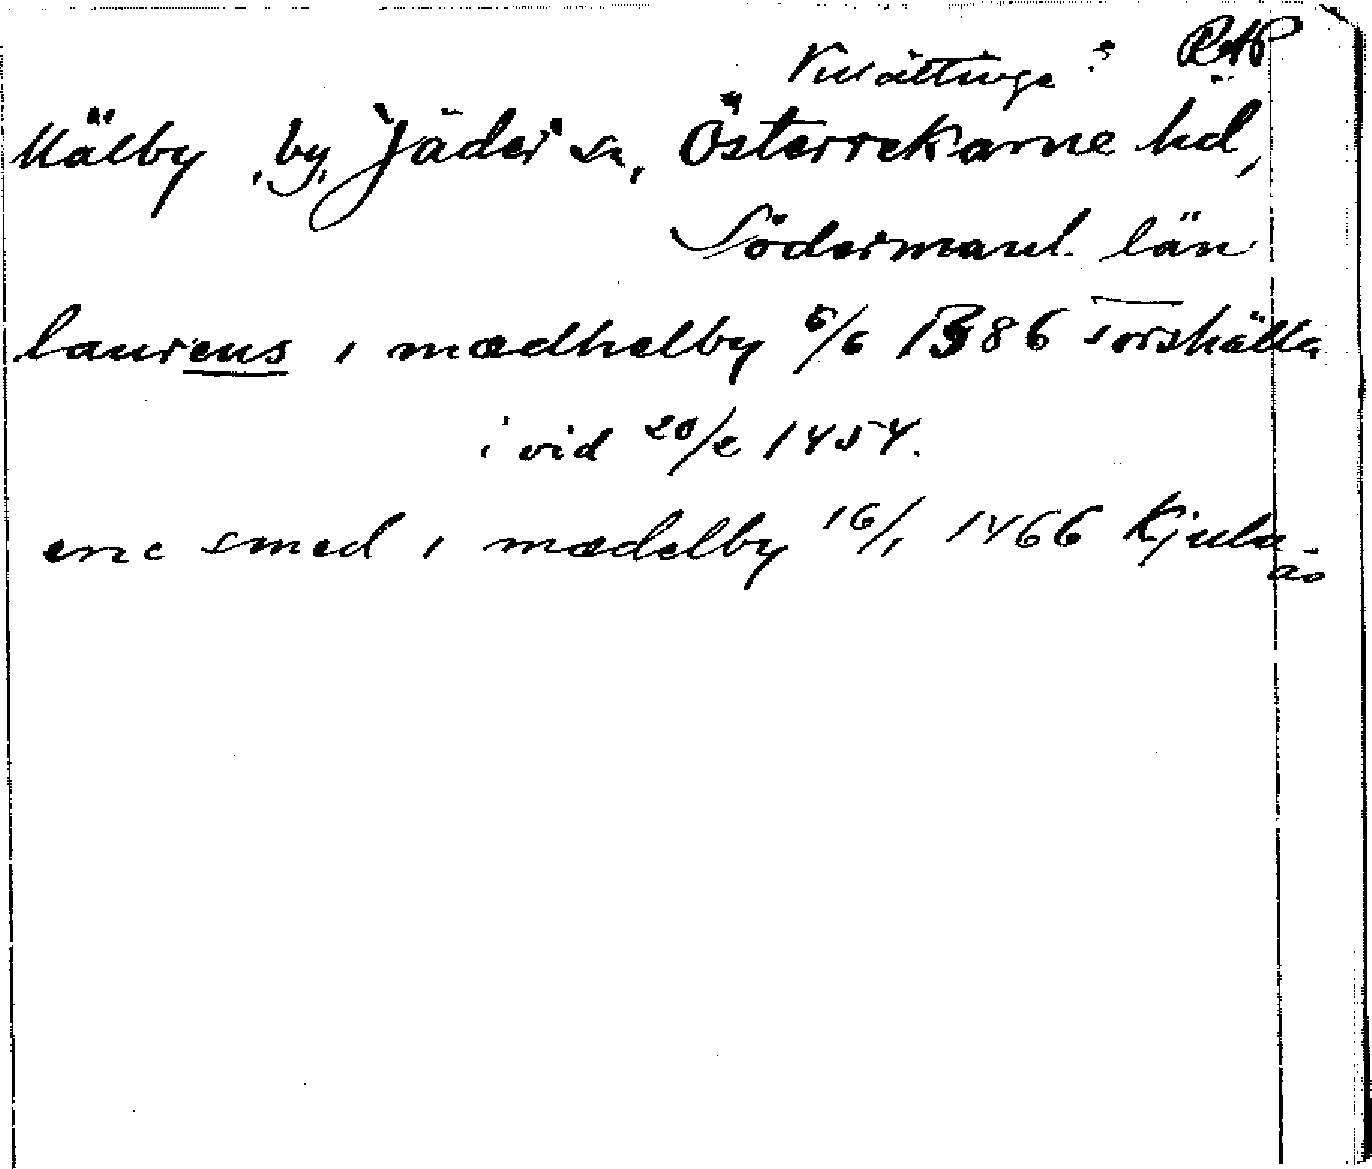 Vilåttinge? RAP
Mälby, by, Jäder sn, Österrekarne hd,
Södermanl. län
laurens i mædhelby 6/6 1386 Torshälla
i vid 20/2 1454.
eric smed i mædelby 16/1 1466 Kjula
ås